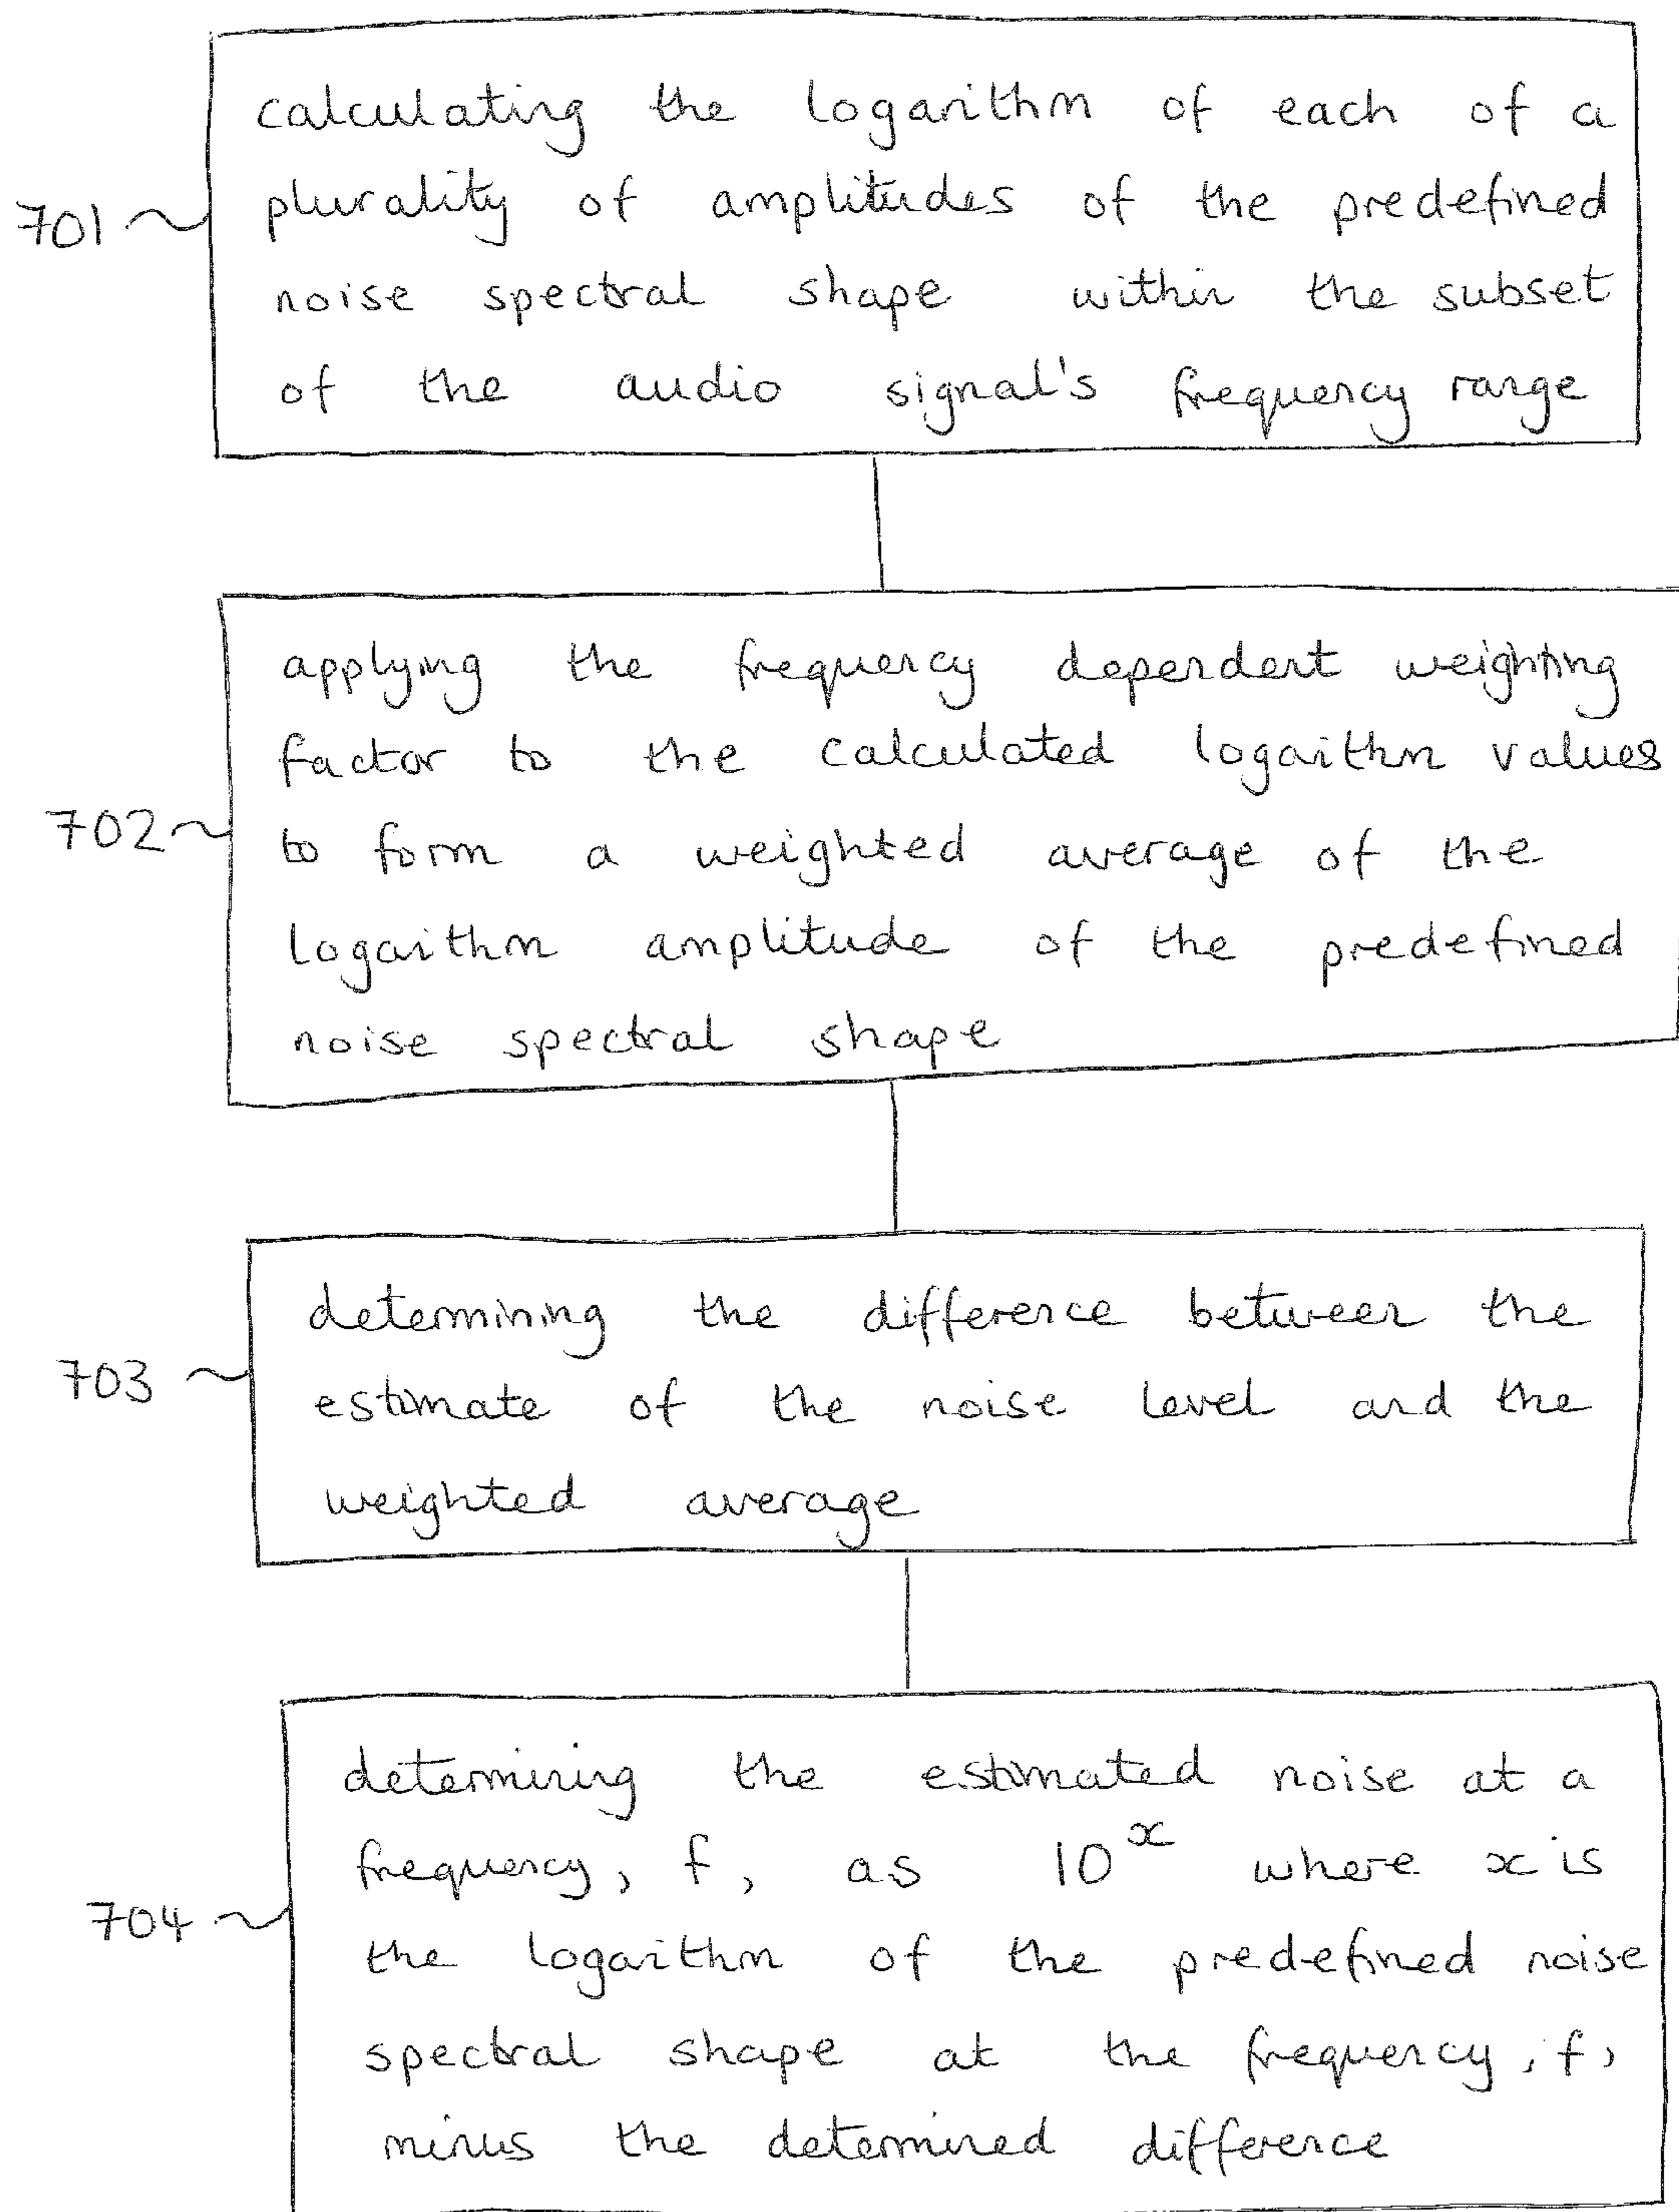 calculating the logarithm of each of a
plurality of amplitudes of the predefined
701
noise spectral shape within the subset
of the audio signal's frequency range
applying the frequency dependent weighting
factor to the calculated logarithm values
702
to form a weighted average of the
logarithm amplitude of the predefined
noise spectral shape
determining the difference between the
703
estimate of the noise level and the
weighted average
determining the estimated noise at a
frequency, f, as 10^x where x is
704
the logarithm of the predefined noise
spectral shape at the frequency, f,
minus the determined difference